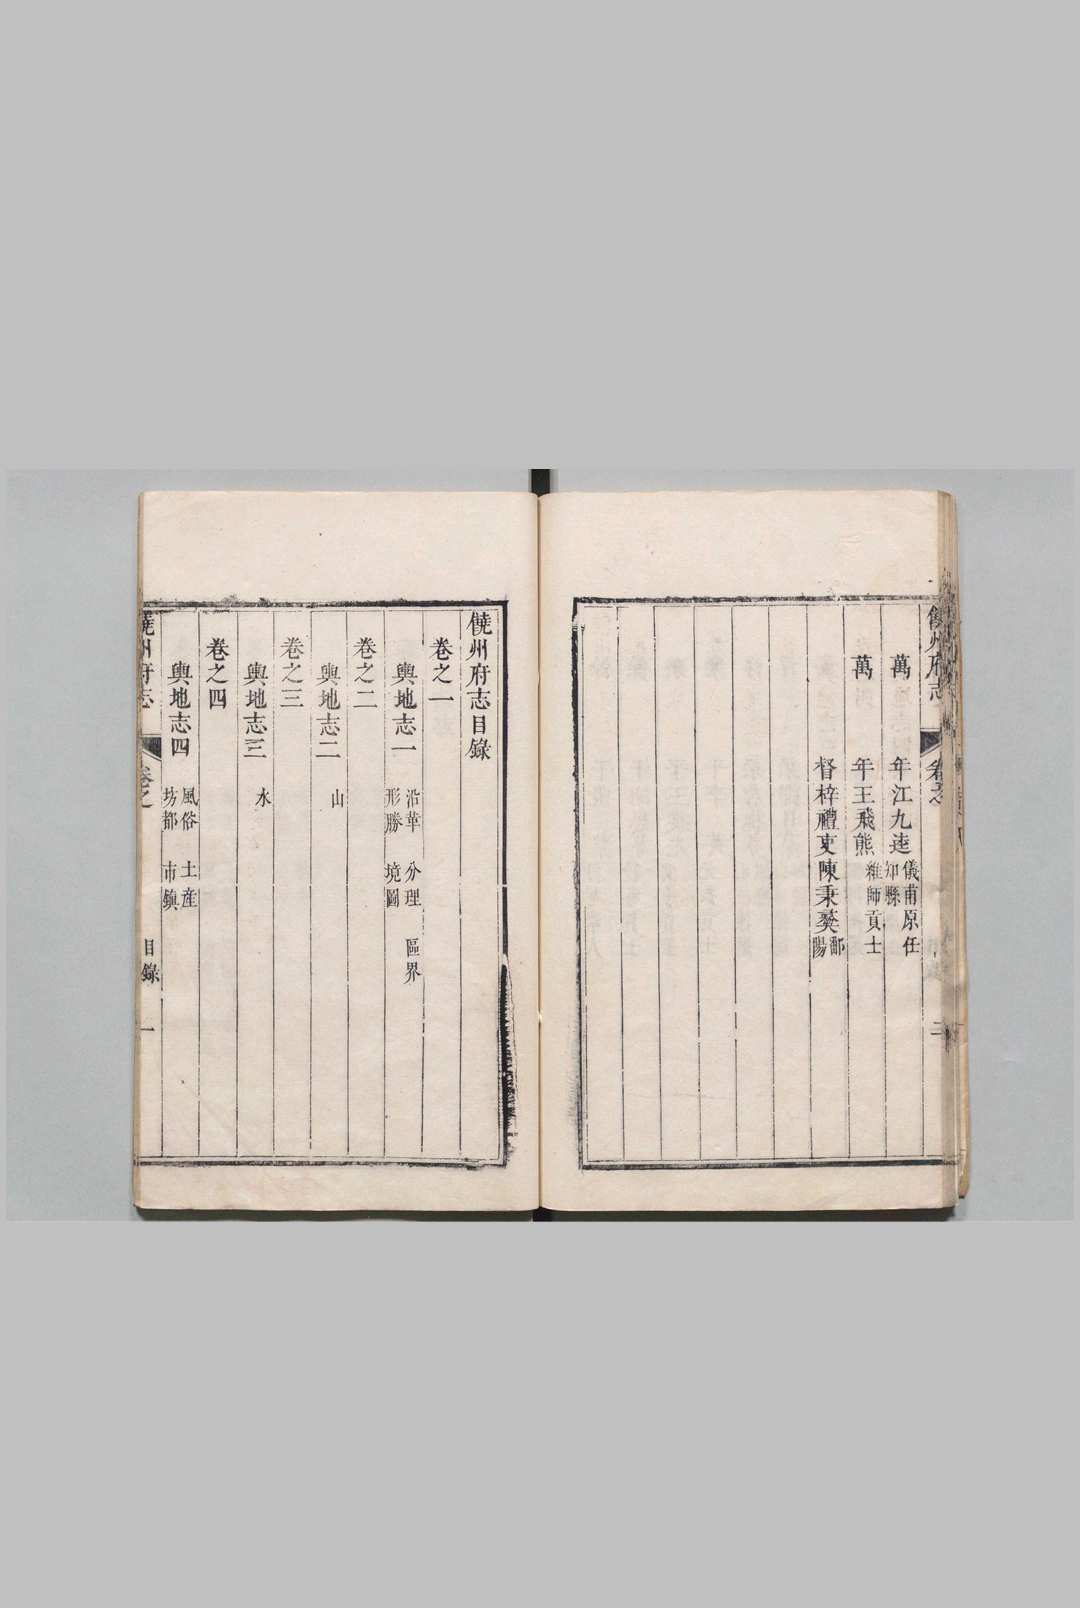 饒州府志
卷之
二
萬　　年江九逵儀甫原任知縣
萬　　年王飛熊維師貢士
督梓禮吏陳秉葵鄱陽
饒州府志目錄
卷之一
輿地志一　沿革　分理　區界
形勝　境圖
卷之二
輿地志二　山
卷之三
輿地志三　水
卷之四
輿地志四　風俗　土產
坊都　市鎮
饒州府志
卷之
目錄
一